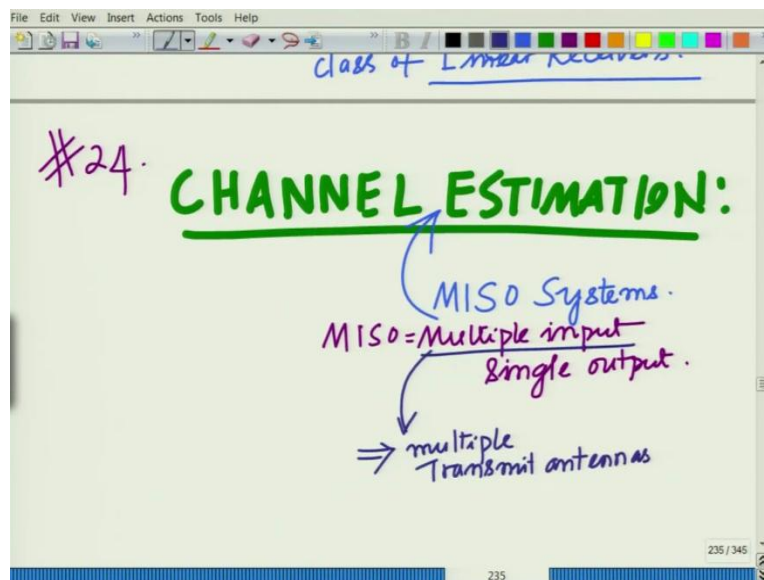 File Edit View Insert Actions Tools Help
class of Linear Receivers.
#24.
CHANNEL ESTIMATION:
MISO Systems.
MISO = Multiple input
Single output.
⇒ multiple
Transmit antennas
235 / 345
235